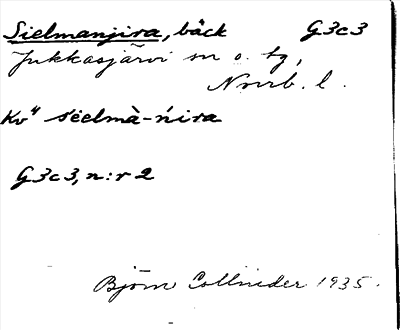 Sielmanjira, bäck G3c3
Jukkasjärvi sn o. tg,
Norrb. l.
Kv" sēelmà-ńira
G3c3, n:r 2
Björn Collinder 1935.